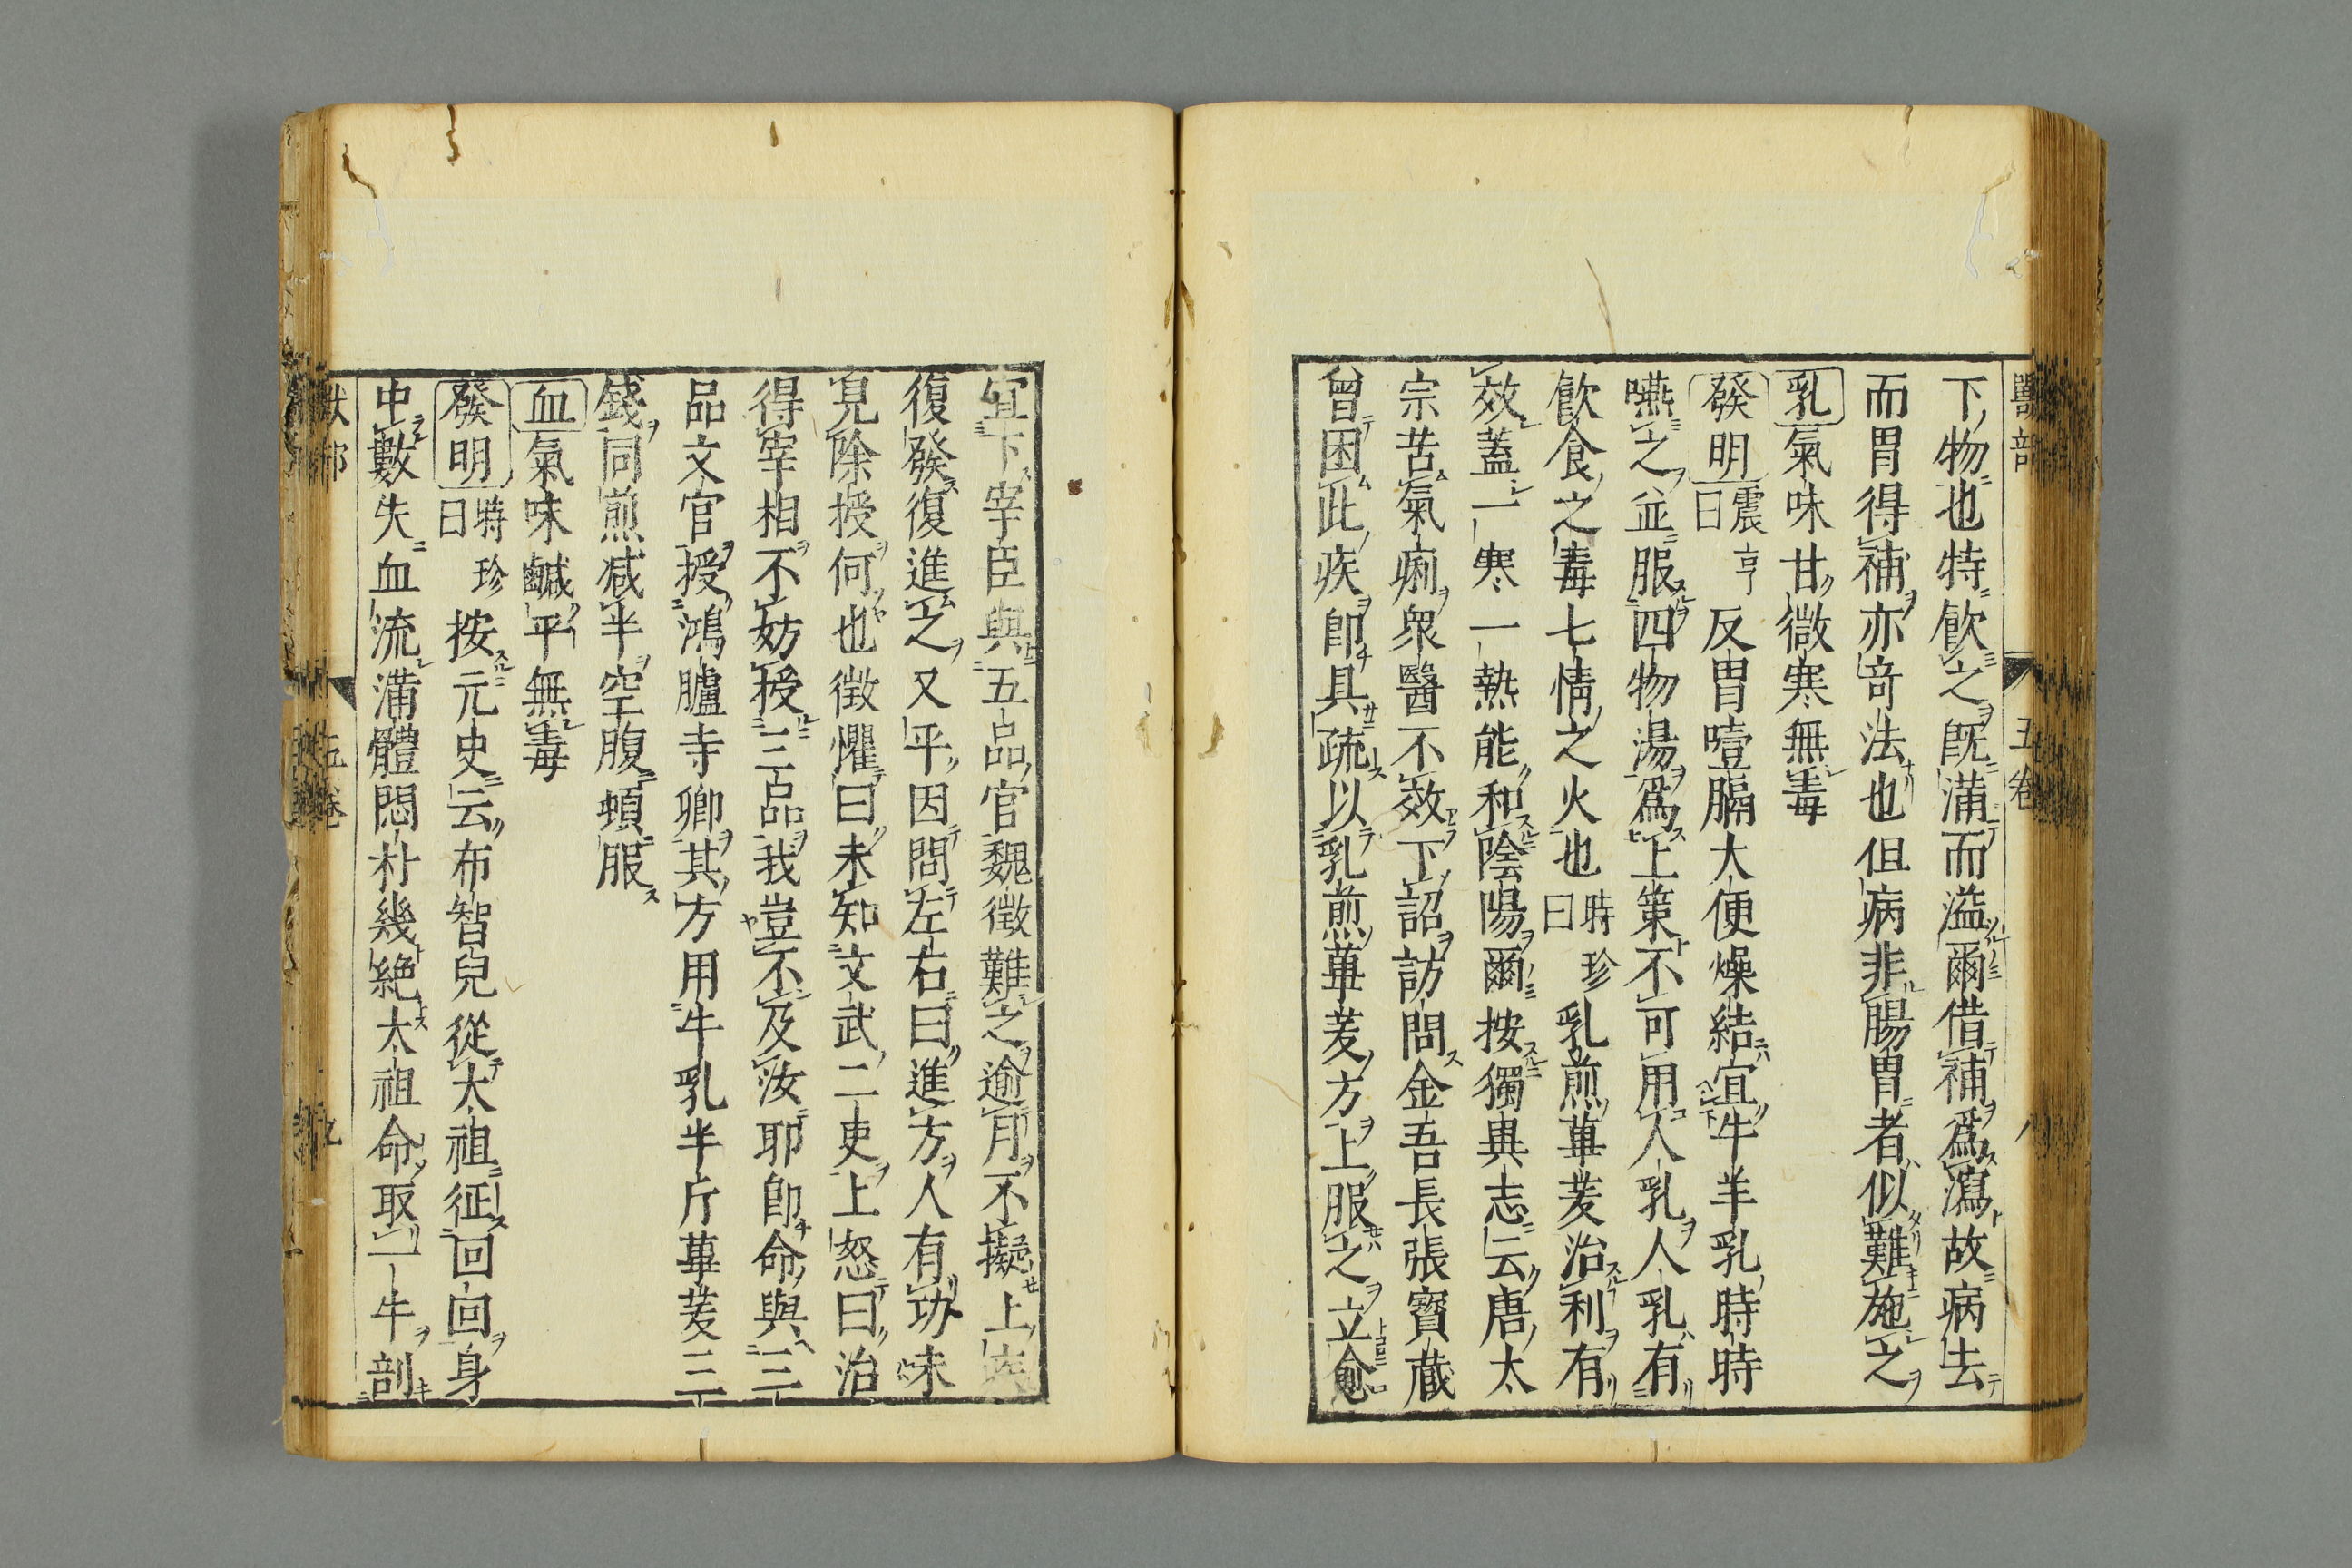 獸部 五卷 八
下物也特飲之既滿而溢爾借補爲瀉故病去
而胃得補亦竒法也但病非腸胃者似難施之
乳氣味甘微寒無毒
發明震亨曰反胃噎膈大便燥結宜牛羊乳時時
嚥之並服四物湯爲上策不可用人乳人乳有
飲食之毒七情之火也時珍曰乳煎蓽茇治利有
效蓋一寒一熱能和陰陽爾按獨異志云唐太
宗苦氣痢衆醫不效下詔訪問金吾長張寶藏
曾困此疾即具疏以乳煎蓽茇方上服之立愈
宣下宰臣與五品官魏徵難之逾月不擬上疾
復發復進之又平因問左右曰進方人有功未
見除授何也徵懼曰未知文武二吏上怒曰治
得宰相不妨授三品我豈不及汝耶即命與三
品文官授鴻臚寺卿其方用牛乳半斤蓽茇三
錢同煎减半空腹頓服
血氣味鹹平無毒
發明時珍曰按元史云布智兒從太祖征回回身
中數失血流滿體悶朴幾絶太祖命取一牛剖
獸部 五卷 九